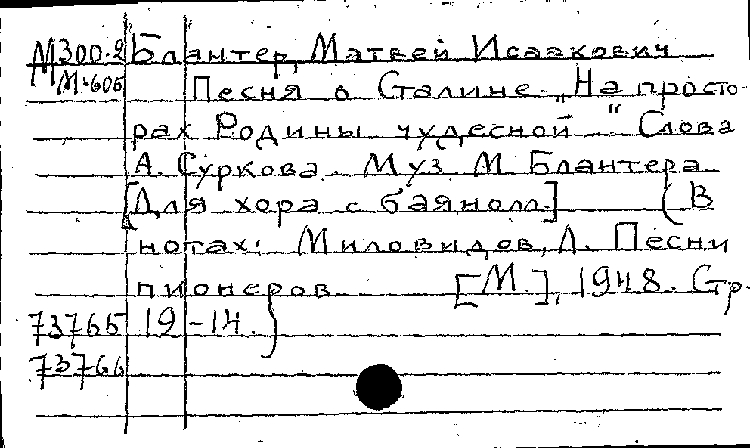 М300.2 Блантер, Матвей Исаакович
М.605 Песня о Сталине. „На просто-
рах Родины чудесной“ Слова
А. Суркова. Муз. М. Блантера.
[Для хора с баяном.] (В
нотах: Миловидев, А. Песни
пионеров. [М.], 1948. Стр.
73765 12-14.)
73766